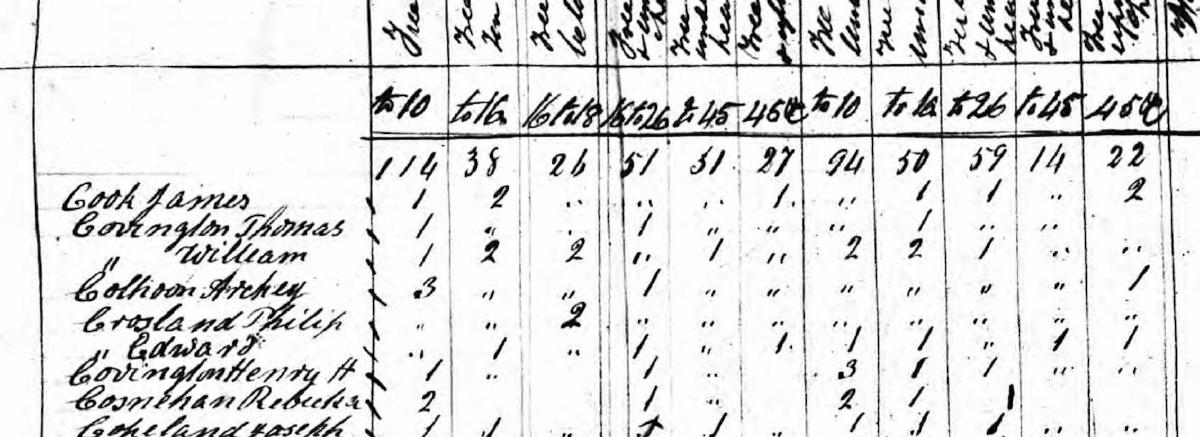 Free Free Free Free Free Free Free Free
to 10 to 16 16 to 18 16 to 26 to 45 45 &c to 10 to 16 to 26 to 45 45 &c
114 38 26 51 31 27 94 50 59 14 22
Cook James 1 2 " " " 1 " 1 1 " 2
Covington Thomas 1 " " 1 " " " 1 " "
" William 1 2 2 " 1 " 2 2 1 " "
Colhoon Archey 3 " " 1 " " " " " " 1
Crosland Philip " " 2 " " " " " " " "
" Edward " 1 " 1 " 1 1 1 " 1 1
Covington Henry H 1 " 1 " 3 1 1 " "
Cosnehan Rebecka 2 1 " 2 1 1
Copeland Joseph 1 1 " 1 1 " 1 1 1 " "